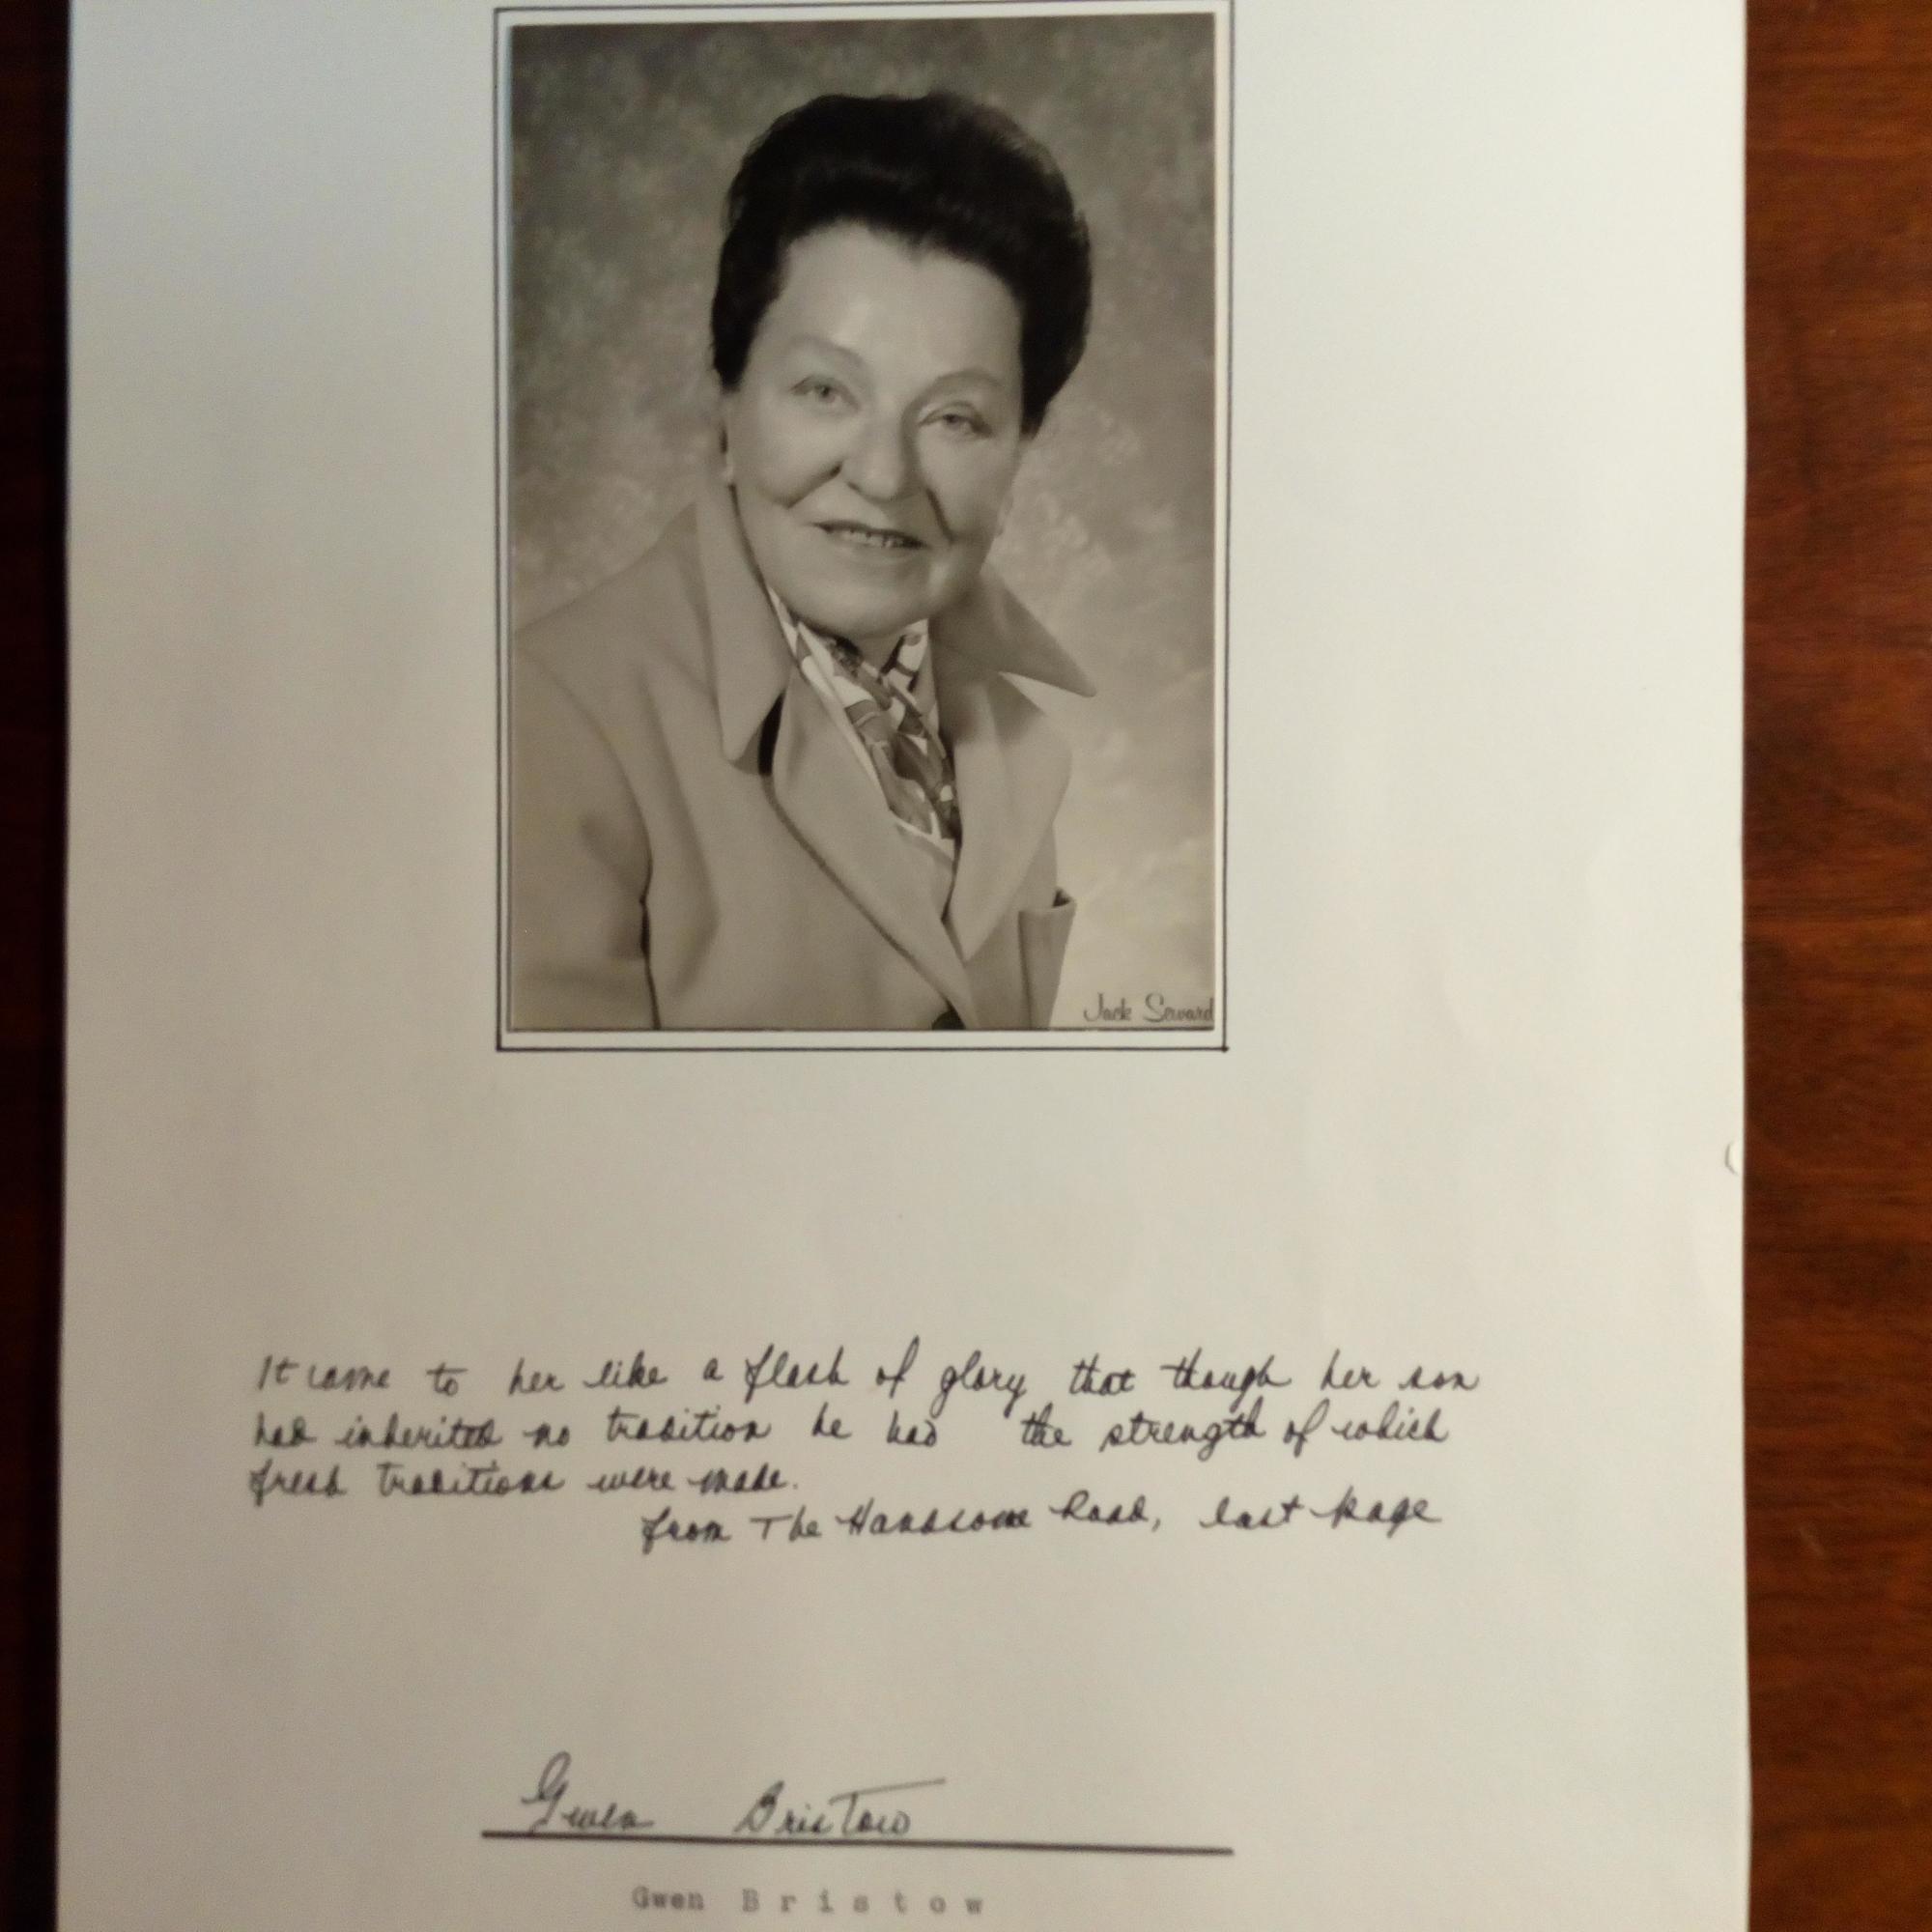 Jack Seward
It came to her like a flash of glory that though her son
had inherited no tradition he had the strength of which
fresh traditions were made.
from The Handsome Road, last page
Gwen Bristow
Gwen Bristow